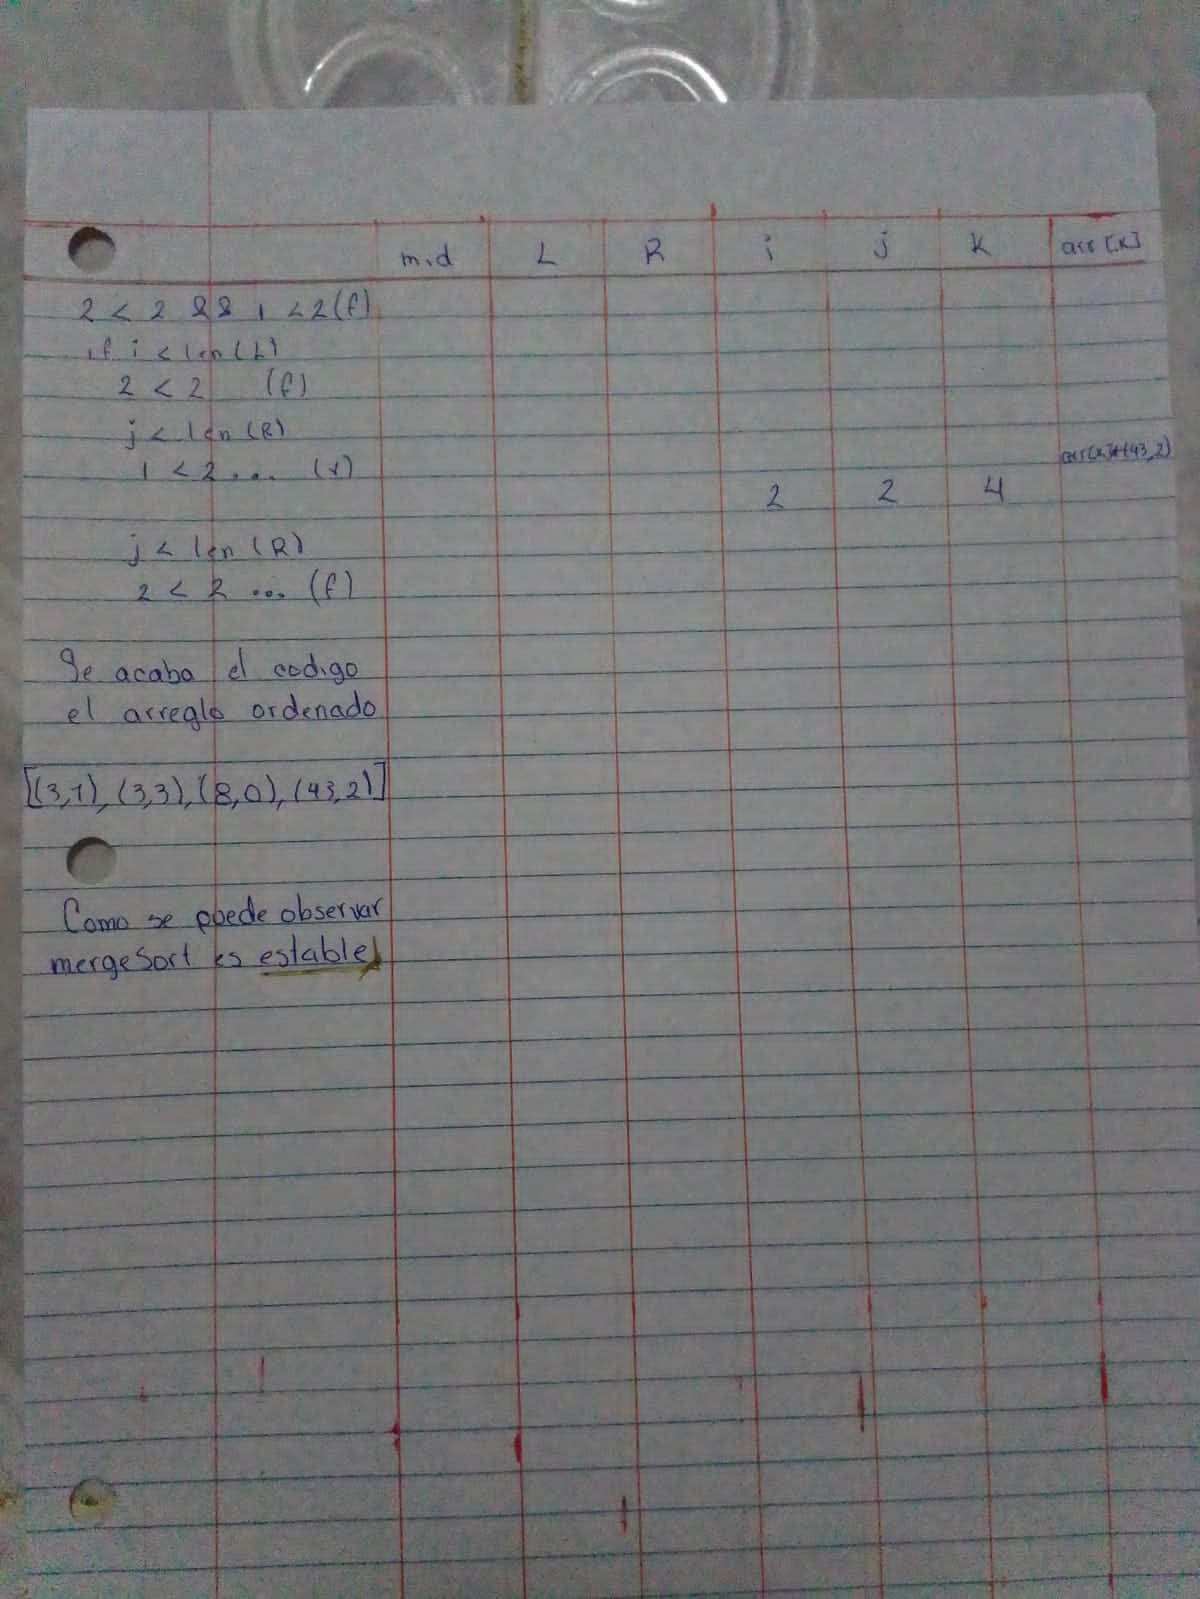 mid L R i j k arr[k]
2 < 2 && 1 < 2 (f)
if i < len(L)
2 < 2 (f)
j < len(R)
1 < 2 ... (v)
2 2 4
j < len(R)
2 < 2 ... (f)
Se acaba el codigo
el arreglo ordenado
[(3,1), (3,3), (8,0), (43,2)]
Como se puede observar
mergeSort es estable